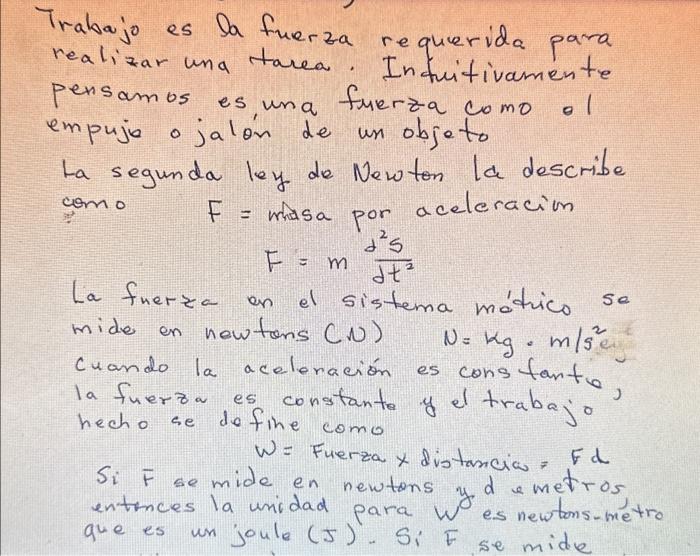 Trabajo es la fuerza requerida para
realizar una tarea. Intuitivamente
pensamos es una fuerza como el
empuje o jalón de un objeto
La segunda ley de Newton la describe
como F = masa por aceleracion
F = m d²s/dt²
La fuerza en el sistema métrico se
mide en newtons (N) N = Kg · m/s²
Cuando la aceleración es constante,
la fuerza es constante y el trabajo
hecho se define como
W = Fuerza x distancia = Fd
Si F se mide en newtons y d e metros,
entonces la unidad para W es newtons-metro
que es un joule (J). Si F se mide